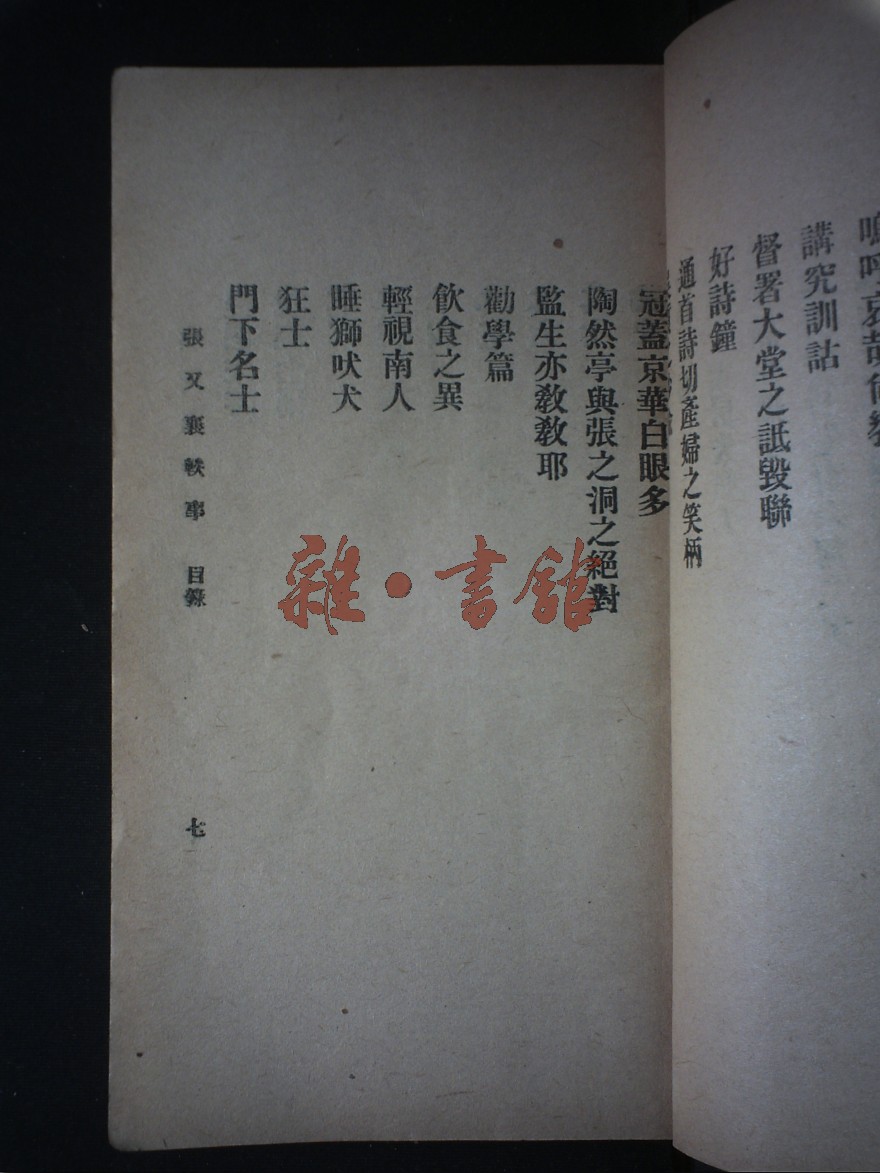 講究訓詁
督署大堂之詆毀聯
好詩鐘
通首詩切產婦之笑柄
冠蓋京華白眼多
陶然亭與張之洞之絕對
監生亦教教耶
勸學篇
飲食之異
輕視南人
睡獅吠犬
狂士
門下名士
張文襄軼事 目錄
七
雜·書館